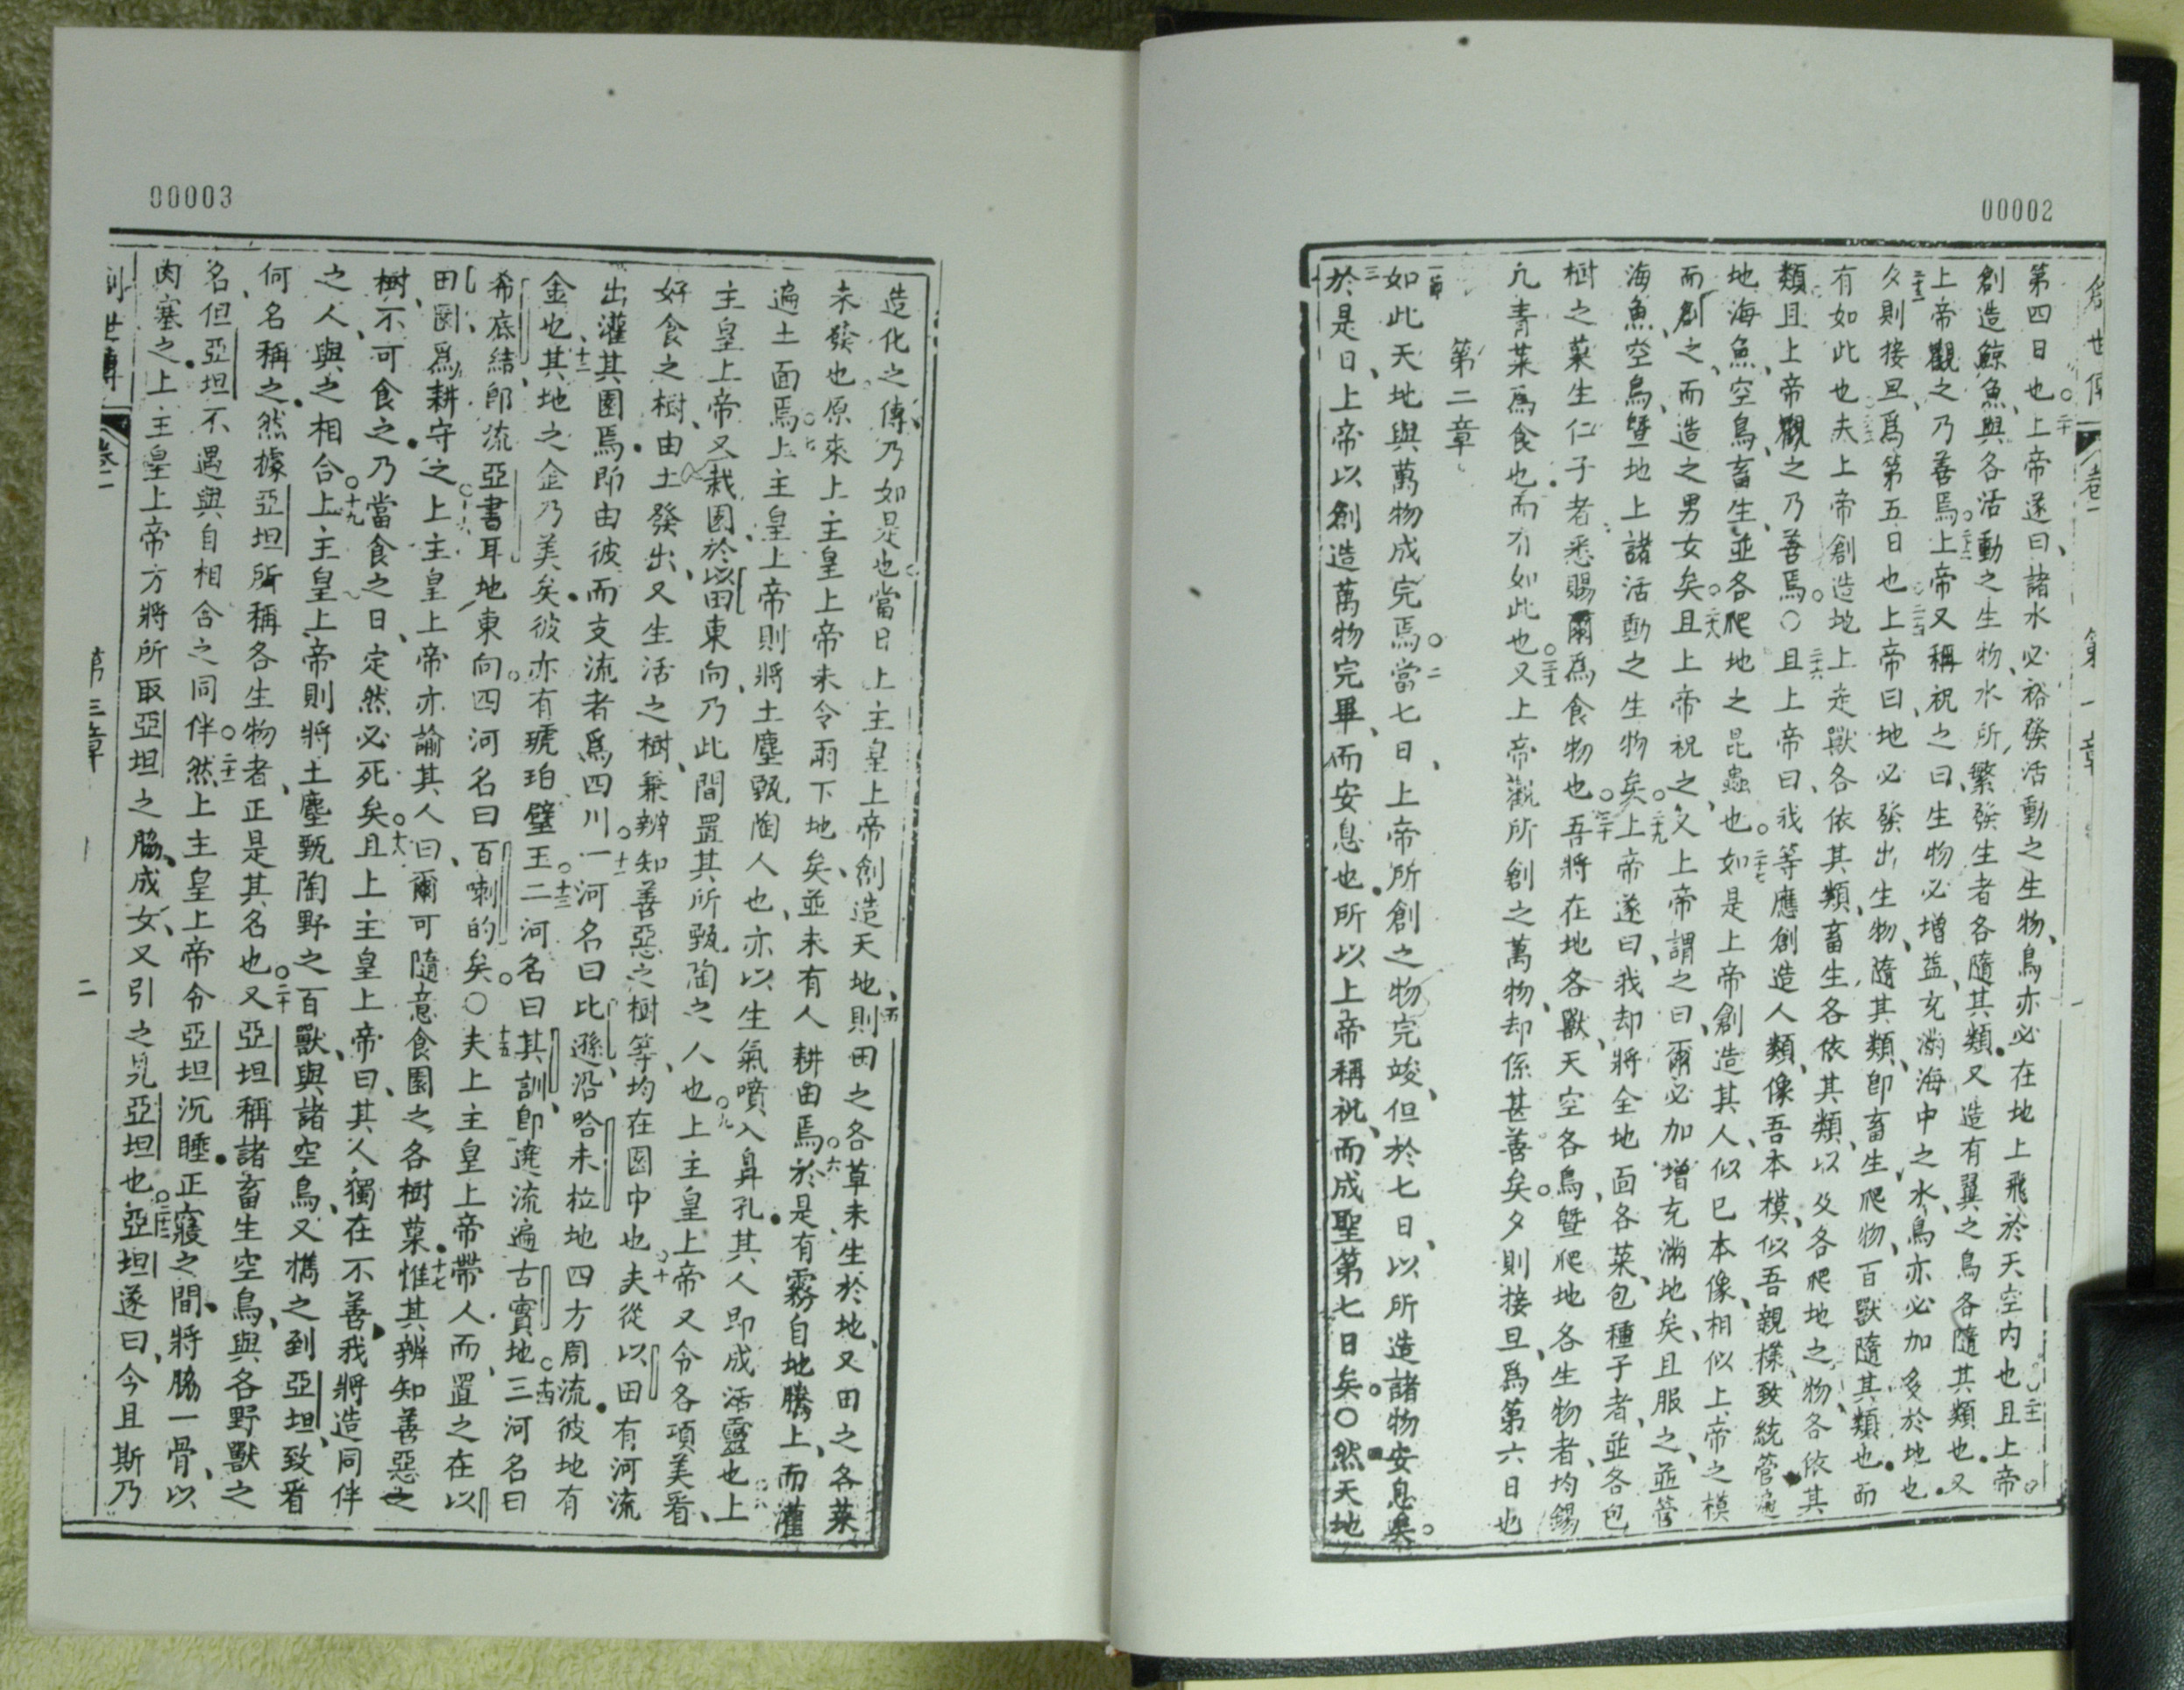 00002
創世傳 卷一 第一章
第四日也、上帝遂曰、諸水必裕發活動之生物、鳥亦必在地上飛於天空內也○二十一且上帝
創造鯨魚、與各活動之生物、水所繁發生者各隨其類、又造有翼之鳥各隨其類也、又
上帝觀之乃善焉○二十二上帝又稱祝之曰、生物必增益、充滿海中之水、鳥亦必加多於地也、
二十三夕則接旦、爲第五日也○二十四上帝曰、地必發出生物、隨其類、即畜生、爬物、百獸隨其類也、而
有如此也○二十五夫上帝創造地上走獸各依其類、畜生各依其類、以及各爬地之物、各依其
類、且上帝觀之乃善焉○二十六且上帝曰、我等應創造人類、像吾本模、似吾親樣、致統管遍
地、海魚、空鳥、畜生、並各爬地之昆蟲也○二十七如是上帝創造其人、似己本像、相似上帝之模
而創之、而造之男女矣○二十八且上帝祝之、又上帝謂之曰、爾必加增充滿地矣、且服之、並管
海魚、空鳥、曁地上諸活動之生物矣○二十九上帝遂曰、我却將全地面各菜、包種子者、並各包
樹之菓生仁子者、悉賜爾爲食物也○三十吾將在地各獸、天空各鳥、曁爬地各生物者、均錫
凢青菜爲食也、而有如此也○三十一又上帝觀所創之萬物、却係甚善矣○夕則接旦、爲第六日也
第二章
一節如此天地與萬物成完焉○二當七日、上帝所創之物完竣、但於七日、以所造諸物安息矣○
三於是日、上帝以創造萬物完畢、而安息也、所以上帝稱祝、而成聖第七日矣○然天地
00003
造化之傳、乃如是也○當日上主皇上帝創造天地、五則田之各草未生於地、又田之各菜
未發也○原來上主皇上帝未令雨下地矣、並未有人耕田焉○六於是有霧自地騰上、而灌
遍土面焉○七上主皇上帝則將土塵甄陶人也、亦以生氣噴入鼻孔、其人即成活靈也○八上
主皇上帝又栽園於以田東向、乃此間置其所甄陶之人也○九上主皇上帝又令各項美看、
好食之樹、由土發出、又生活之樹、兼辨知善惡之樹等、均在園中也○十夫從以田有河流
出灌其園焉、即由彼而支流者爲四川○十一一河名曰比遜、沿哈未拉地四方周流、彼地有
金也、十二其地之金乃美矣、彼亦有琥珀璧玉○十三二河名曰其訓、即遶流遍古實地○十四三河名曰
希底結、即流亞書耳地東向○四河名曰百喇的矣○○十五夫上主皇上帝帶人而置之在以
田園、爲耕守之○十六上主皇上帝亦諭其人曰、爾可隨意食園之各樹菓、十七惟其辨知善惡之
樹、不可食之、乃當食之日、定然必死矣○十八且上主皇上帝曰、其人獨在不善、我將造同伴
之人、與之相合○十九上主皇上帝則將土塵甄陶野之百獸、與諸空鳥、又攜之到亞坦、致看
何名稱之、然據亞坦所稱各生物者、正是其名也○二十又亞坦稱諸畜生、空鳥、與各野獸之
名、但亞坦不遇與自相合之同伴○二十一然上主皇上帝令亞坦沉睡、正寢之間、將脇一骨、以
肉塞之、上主皇上帝方將所取亞坦之脇、成女、又引之見亞坦也○二十三亞坦遂曰、今且斯乃
創世傳 卷一 第三章 二